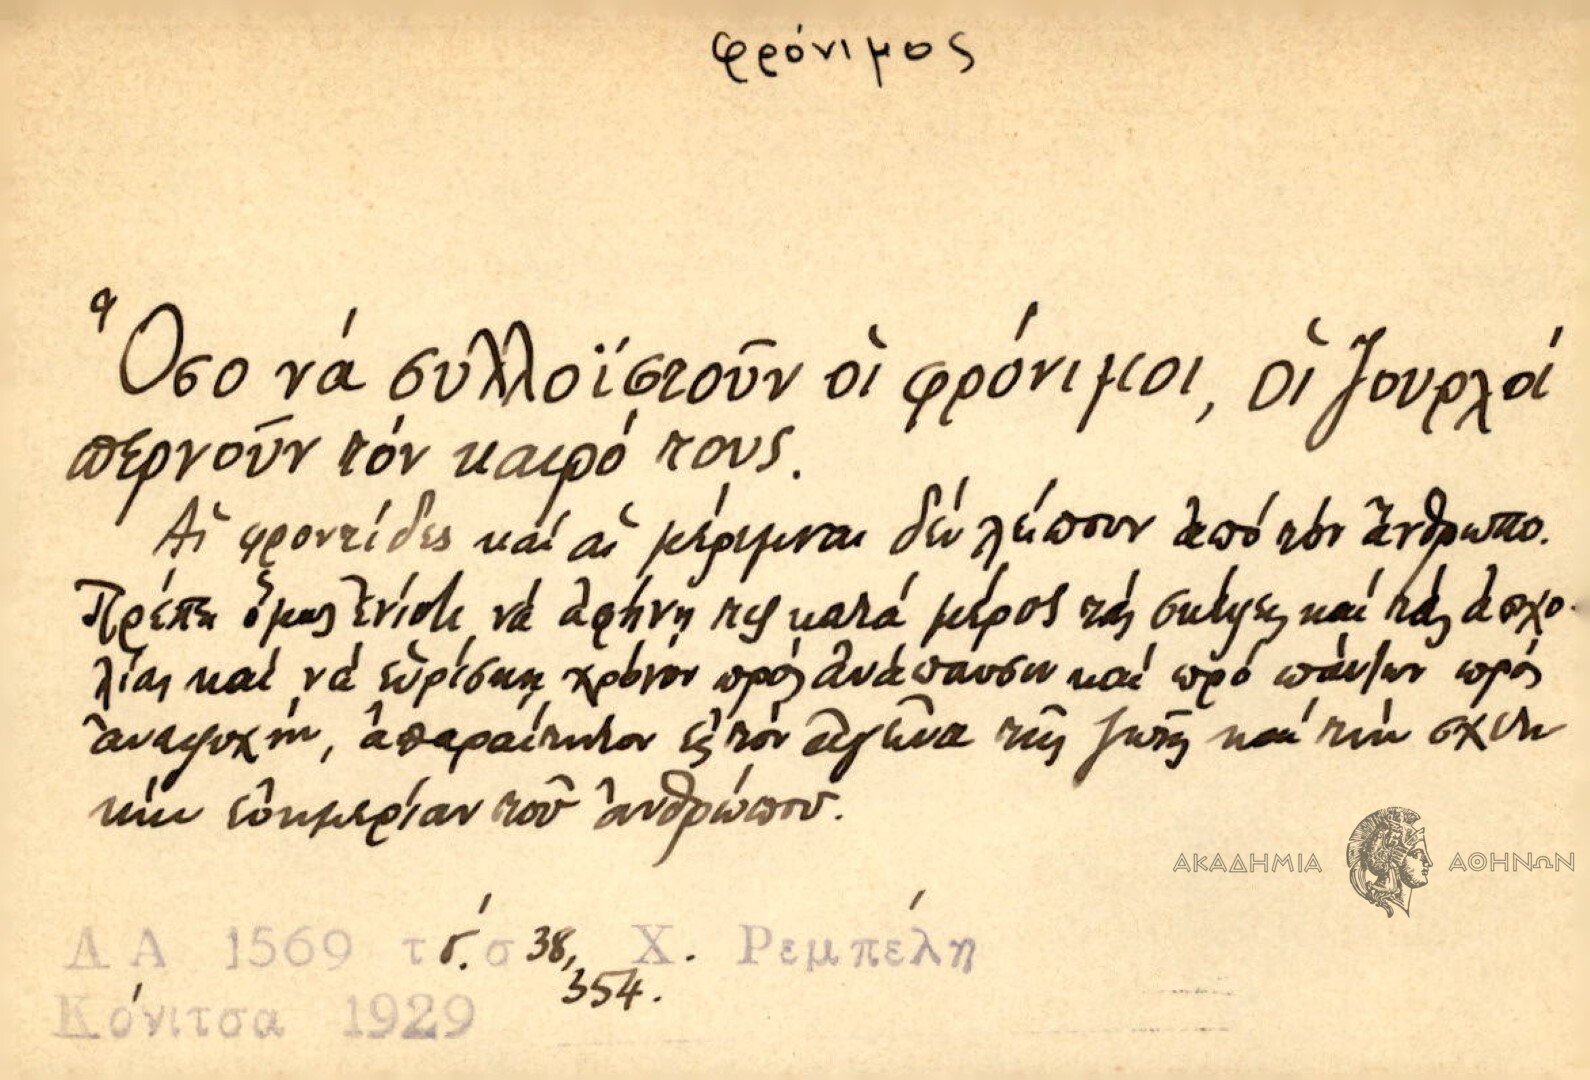 φρόνιμος
Ὅσο νά συλλοϊστοῦν οἱ φρόνιμοι, οἱ ζουρλοί
περνοῦν τόν καιρό τους.
Αἱ φροντίδες καί αἱ μέριμναι δέν λείπουν ἀπό τόν ἄνθρωπο.
Πρέπει ὅμως ἐνίοτε νά ἀφήνῃ τις κατά μέρος τάς σκέψεις καί τάς ἀσχο-
λίας καί νά εὑρίσκῃ χρόνον πρός ἀνάπαυσιν καί πρό πάντων πρός
ἀναψυχήν, ἀπαραίτητον εἰς τόν ἀγῶνα τῆς ζωῆς καί τήν σχετι
κήν εὐημερίαν τοῦ ἀνθρώπου.
ΑΚΑΔΗΜΙΑ ΑΘΗΝΩΝ
ΔΑ 1569 τ γ΄. σ 38, Χ. Ρεμπέλη
354.
Κόνιτσα 1929